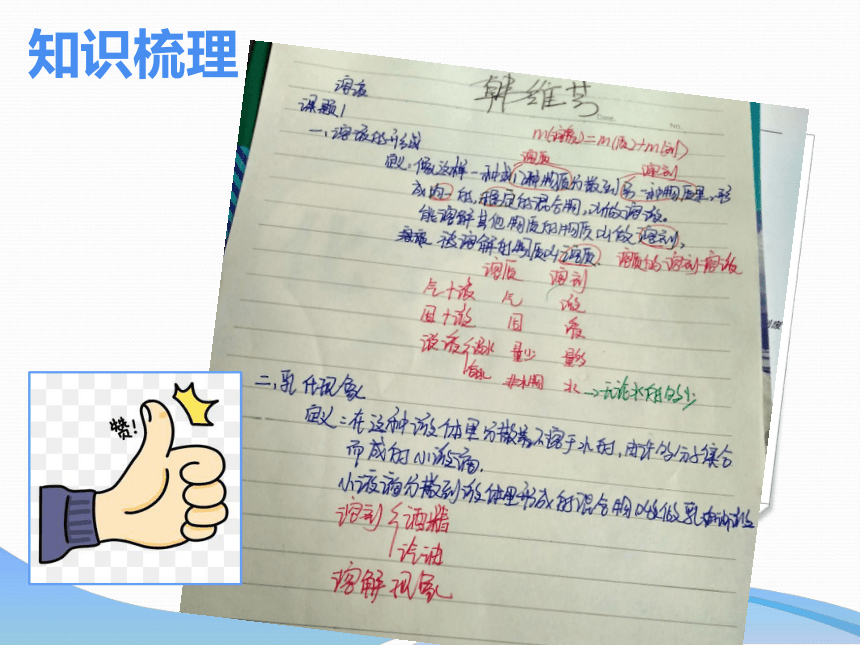 知识梳理
韩维芳
溶液
课题1
一、溶液的形成
m(溶液)=m(质)+m(剂)
溶质 溶剂
定义:像这样一种或几种物质分散到另一种物质里,形
成均一的,稳定的混合物,叫做溶液。
能溶解其他物质的物质叫做溶剂,
被溶解的物质叫溶质。
溶质 溶剂
气+液 气 液
固+液 固 液
液液 有水 量少 量多
水 →无论水的多少
二、乳化现象
定义:在这种液体里分散着不溶于水的,由许多分子集合
而成的小液滴.
小液滴分散到液体里形成的混合物叫做乳浊液
溶剂 酒精
汽油
溶解现象
赞!